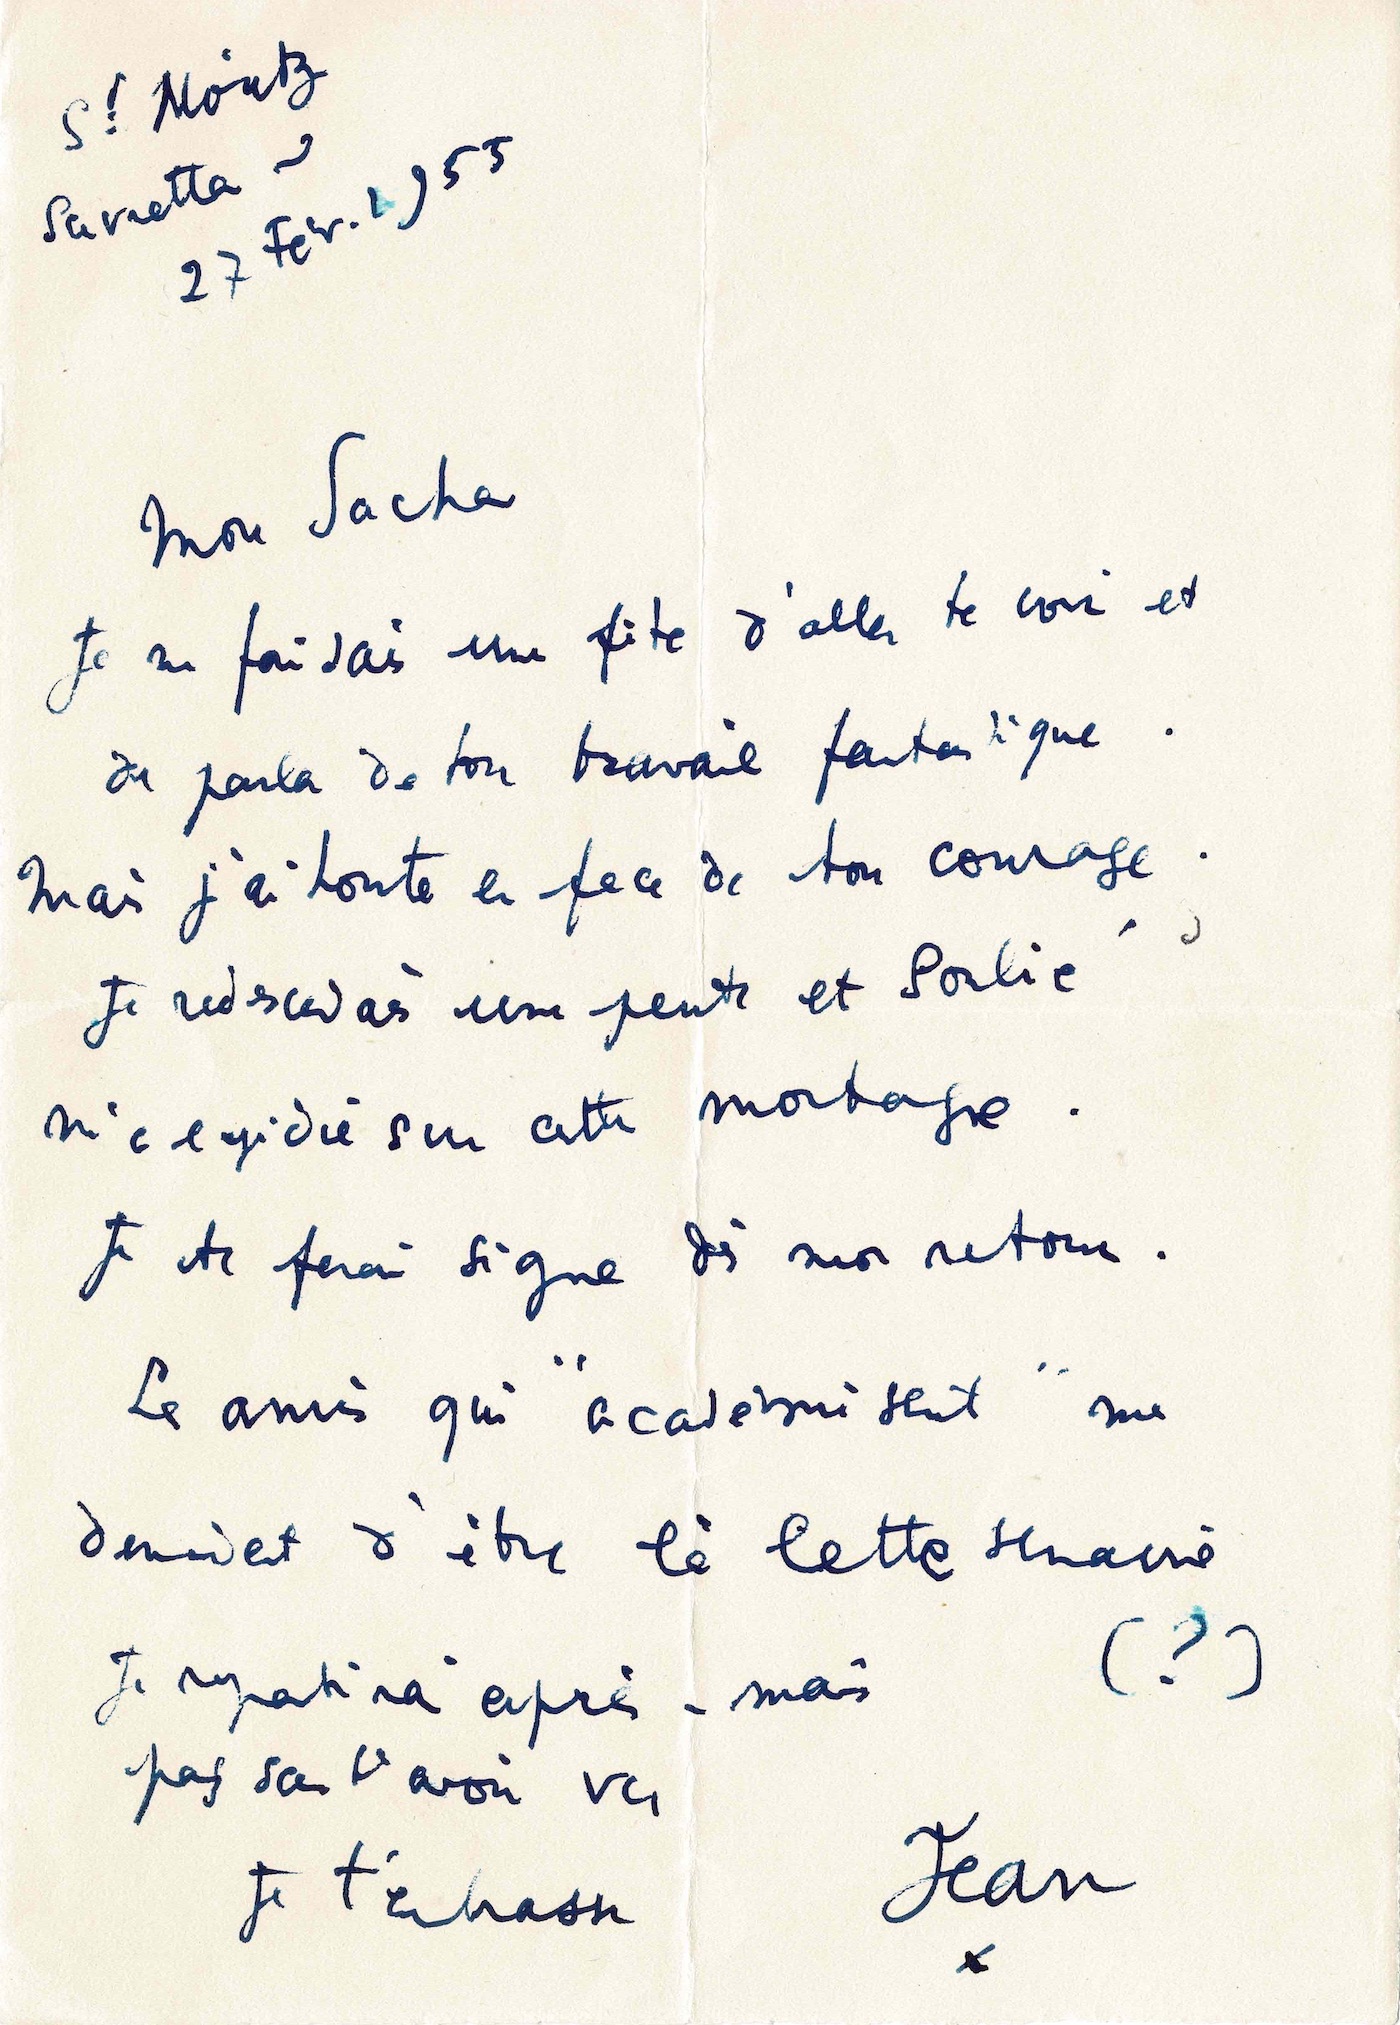 St Moritz
Suvretta
27 Fév. 1955
Mon Sacha
Je me faisais une fête d'aller te voir et
de parler de ton travail fantastique.
Mais j'ai honte en face de ton courage.
Je redescendais une pente et Soulié
sur cette montagne.
Je te ferai signe dès mon retour.
Les amis qui "académisent" me
demandent d'être là cette semaine
(?)
Je repartirai après - mais
pas sans t'avoir vu
Je t'embrasse
Jean